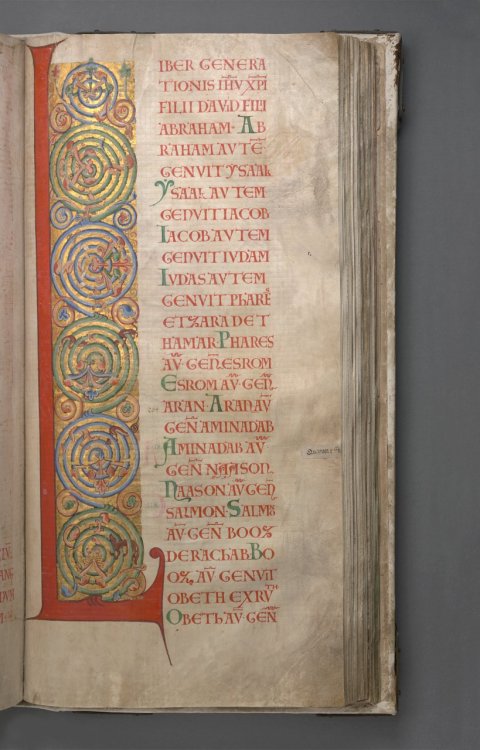 L
IBER GENERA
TIONIS IH̅V XP̅I
FILII DAVID FILI
ABRAHAM· AB
RAHAM AVTE̅
GENVIT YSAAK
YSAAK AVTEM
GENVIT IACOB
IACOB AVTEM
GENVIT IVDAM
IVDAS AVTEM
GENVIT PHARE̅S
ET ZARA DE T
HAMAR· PHARES
AV̅· GEN̅· ESROM
ESROM AV̅· GEN̅·
ARAN· ARAN AV̅
GEN̅ AMINADAB
AMINADAB AV̅
GEN̅ NAASON·
NAASON· AV̅· GEN̅
SALMON· SALMO̅
AV̅· GEN̅ BOOZ
DE RACHAB· BO
OZ, AV̅ GENVIT
OBETH EX RVTH
OBETH· AV̅· GEN̅